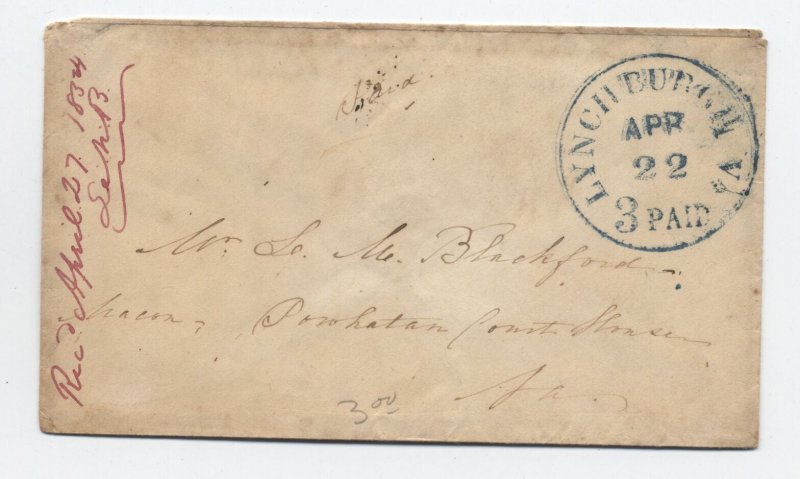 Paid.
LYNCHBURGH Va
APR
22
3 PAID
Mr L. M. Blackford
Macon, Powhatan Court House
Va.
3 00
Rec'd April 27. 1854
L. M. B.